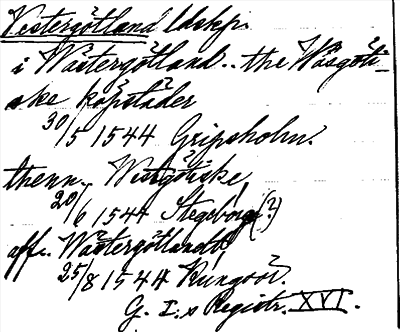 Vestergötland ldskp.
i Wästergötland.. the Wäsgöti-
ske köpstäder
30/5 1544 Gripsholm.
thenn.. Wesgötiske
20/6 1544 Stegeborg (?)
aff.. Wästergötlandt,
25/8 1544 Kungöör.
G. I:s Registr. XVI.